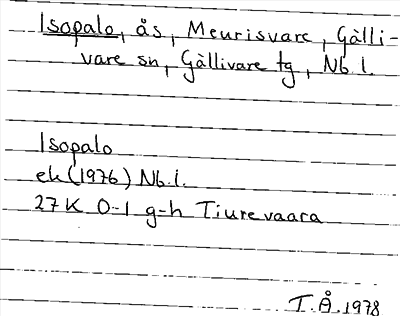 Isopalo, ås, Meurisvare, Gälli-
vare sn, Gällivare tg, Nb.l.
Isopalo
ek (1976) Nb.l.
27K 0-1 g-h Tiurevaara
T.Å.1978